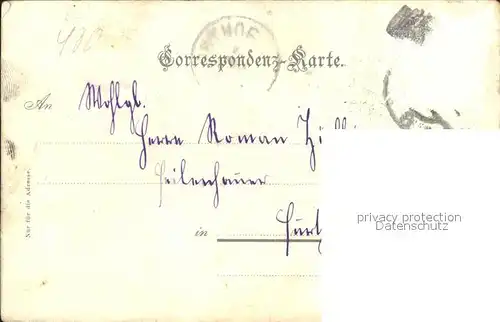 480
HOF
Correspondenz-Karte.
An Wohlgb.
Herrn Roman
Feilenhauer
in
Nur für die Adresse.
privacy protection
Datenschutz